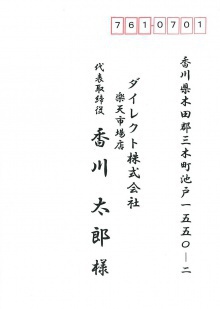 761-0701
香川県木田郡三木町池戸一五五〇-二
ダイレクト株式会社
楽天市場店
代表取締役 香川 太郎 様